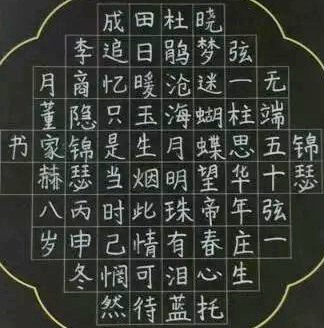 锦瑟
无端五十弦一
弦一柱思华年庄生
晓梦迷蝴蝶望帝春心托
杜鹃沧海月明珠有泪蓝
田日暖玉生烟此情可待
成追忆只是当时己惘然
李商隐锦瑟丙申冬
月董家赫八岁
书